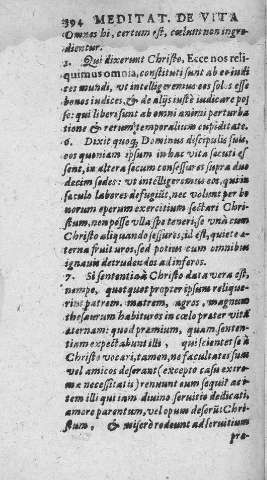 394 MEDITAT. DE VITA
Omnes hi, certum est, cœlum non ingre-
dientur.
5. Qui dixerunt Christo. Ecce nos reli-
quimus omnia, constituti sunt ab eo indi
ces mundi, vt intelligeremus eos solos esse
bonos iudices, & de alijs iustè iudicare pos
se: qui liberi sunt ab omni animi perturba
tione & rerum temporalium cupiditate.
6. Dixit quoq, Dominus discipulis suis,
eos quoniam ipsum in hac vita secuti es
sent, in altera secum consessuros supra duo
decim sedes: vt intelligeremus eos, qui in
sæculo labores defugiūt, nec volunt per bo
norum operum exercitium sectari Chri
stum, nen posse vlla spe teneri, se vnà cum
Christo aliquando sessuros, id est, quiete æ-
terna fruituros, sed potius cum omnibus
ignauis detrudendos ad inferos.
7. Si sententia à Christo data vera est,
nempe, quotquot propter ipsum relique-
rint patrem, matrem, agros, magnum
thesaurum habituros in cœlo præter vitā
æternam: quod præmium, quam senten-
tiam expectabunt illi, qui scienter se à
Christo vocari, tamen, ne facultates suas
vel amicos deserant (excepto casu extre-
mæ necessitatis) rennunt eum sequi? aut
tem illi qui iam diuino seruitio dedicati,
amore parentum, vel opum deserūt Chri-
stum, & miserè redeunt ad seruitium
pre-